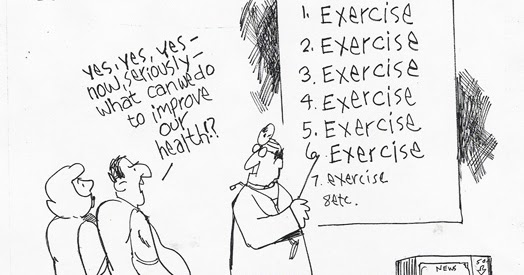 yes, yes, yes-
now, seriously-
what can we do
to improve
our
health!?
1. Exercise
2. Exercise
3. Exercise
4. Exercise
5. Exercise
6. Exercise
7. exercise
8 etc.
NEWS